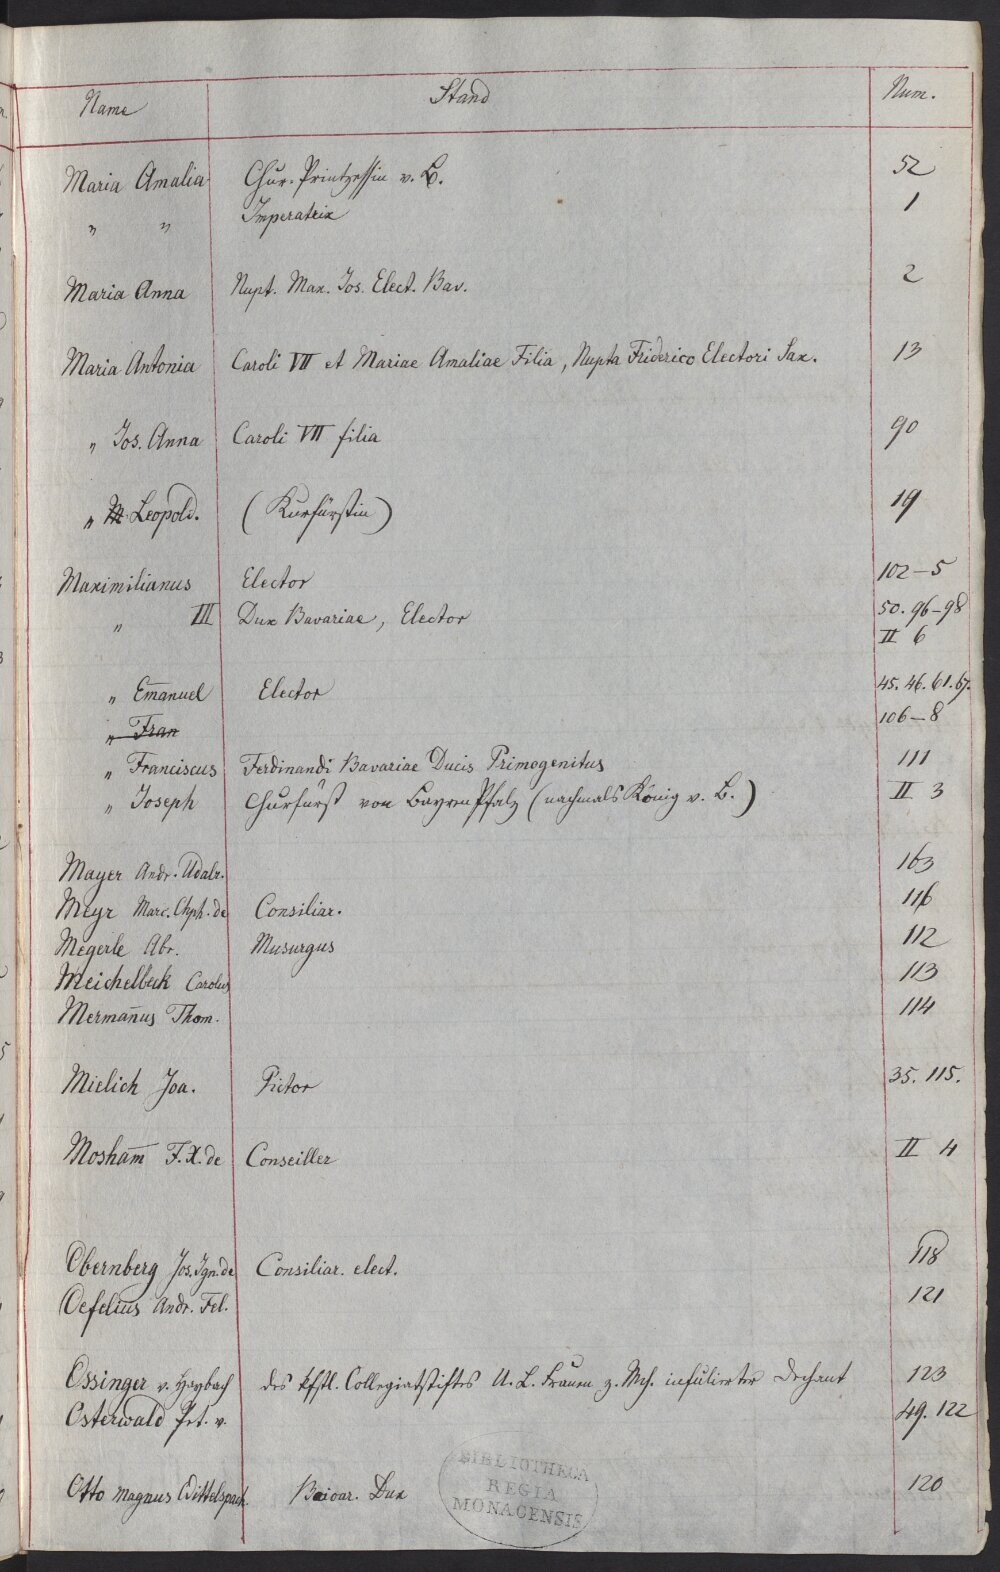 Name Stand Num.
Maria Amalia Chur-Printzessin v. B. 52
" " Imperatrix 1
Maria Anna Nupt. Max. Jos. Elect. Bav. 2
Maria Antonia Caroli VII et Mariae Amaliae Filia, Nupta Friderico Electori Sax. 13
" Jos. Anna Caroli VII filia 90
" Leopold. (Kurfürstin) 19
Maximilianus Elector 102–5
" III Dux Bavariae, Elector 50. 96–98
II 6
" Em̄anuel Elector 45. 46. 61. 67.
" Fran 106–8
" Franciscus Ferdinandi Bavariae Ducis Primogenitus 111
" Joseph Churfürst von Bayern Pfalz (nachmals König v. B.) II 3
Mayer Andr. Udalr. 163
Meyr Marc. Chph. de Consiliar. 116
Megerle Abr. Musurgus 112
Meichelbeck Carolus 113
Merman̄us Thom. 114
Mielich Joa. Pictor 35. 115.
Mosham̄ F. X. de Conseiller II 4
Obernberg Jos. Ign. de Consiliar. elect. 118
Oefelius Andr. Fel. 121
Ossinger v. Haybach des kfstl. Collegiatstiftes U. L. Frauen z. Mch. infulierter Dechant 123
Osterwald Pet. v. 49. 122
Otto magnus Wittelspach. Baioar. Dux 120
BIBLIOTHECA
REGIA
MONACENSIS